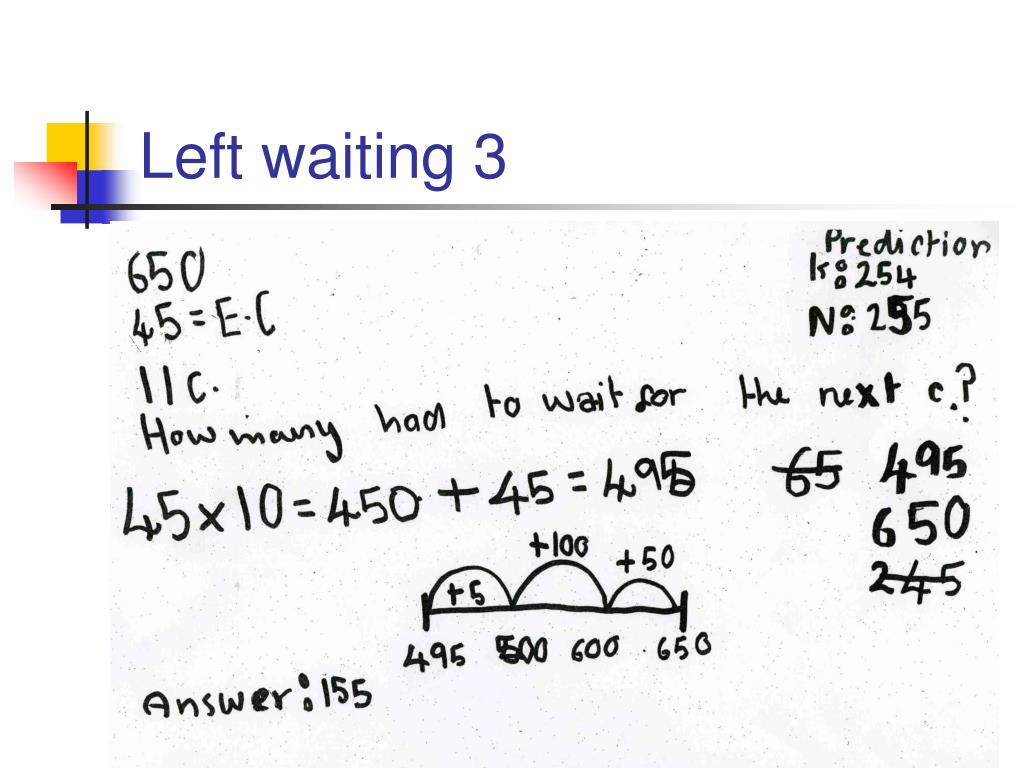 Left waiting 3
Prediction
K: 254
N: 255
650
45 = E.C
11 c.
How many had to wait for the next c.?
45 x 10 = 450 + 45 = 495
65 495
650
245
+5 +100 +50
495 500 600 650
Answer: 155